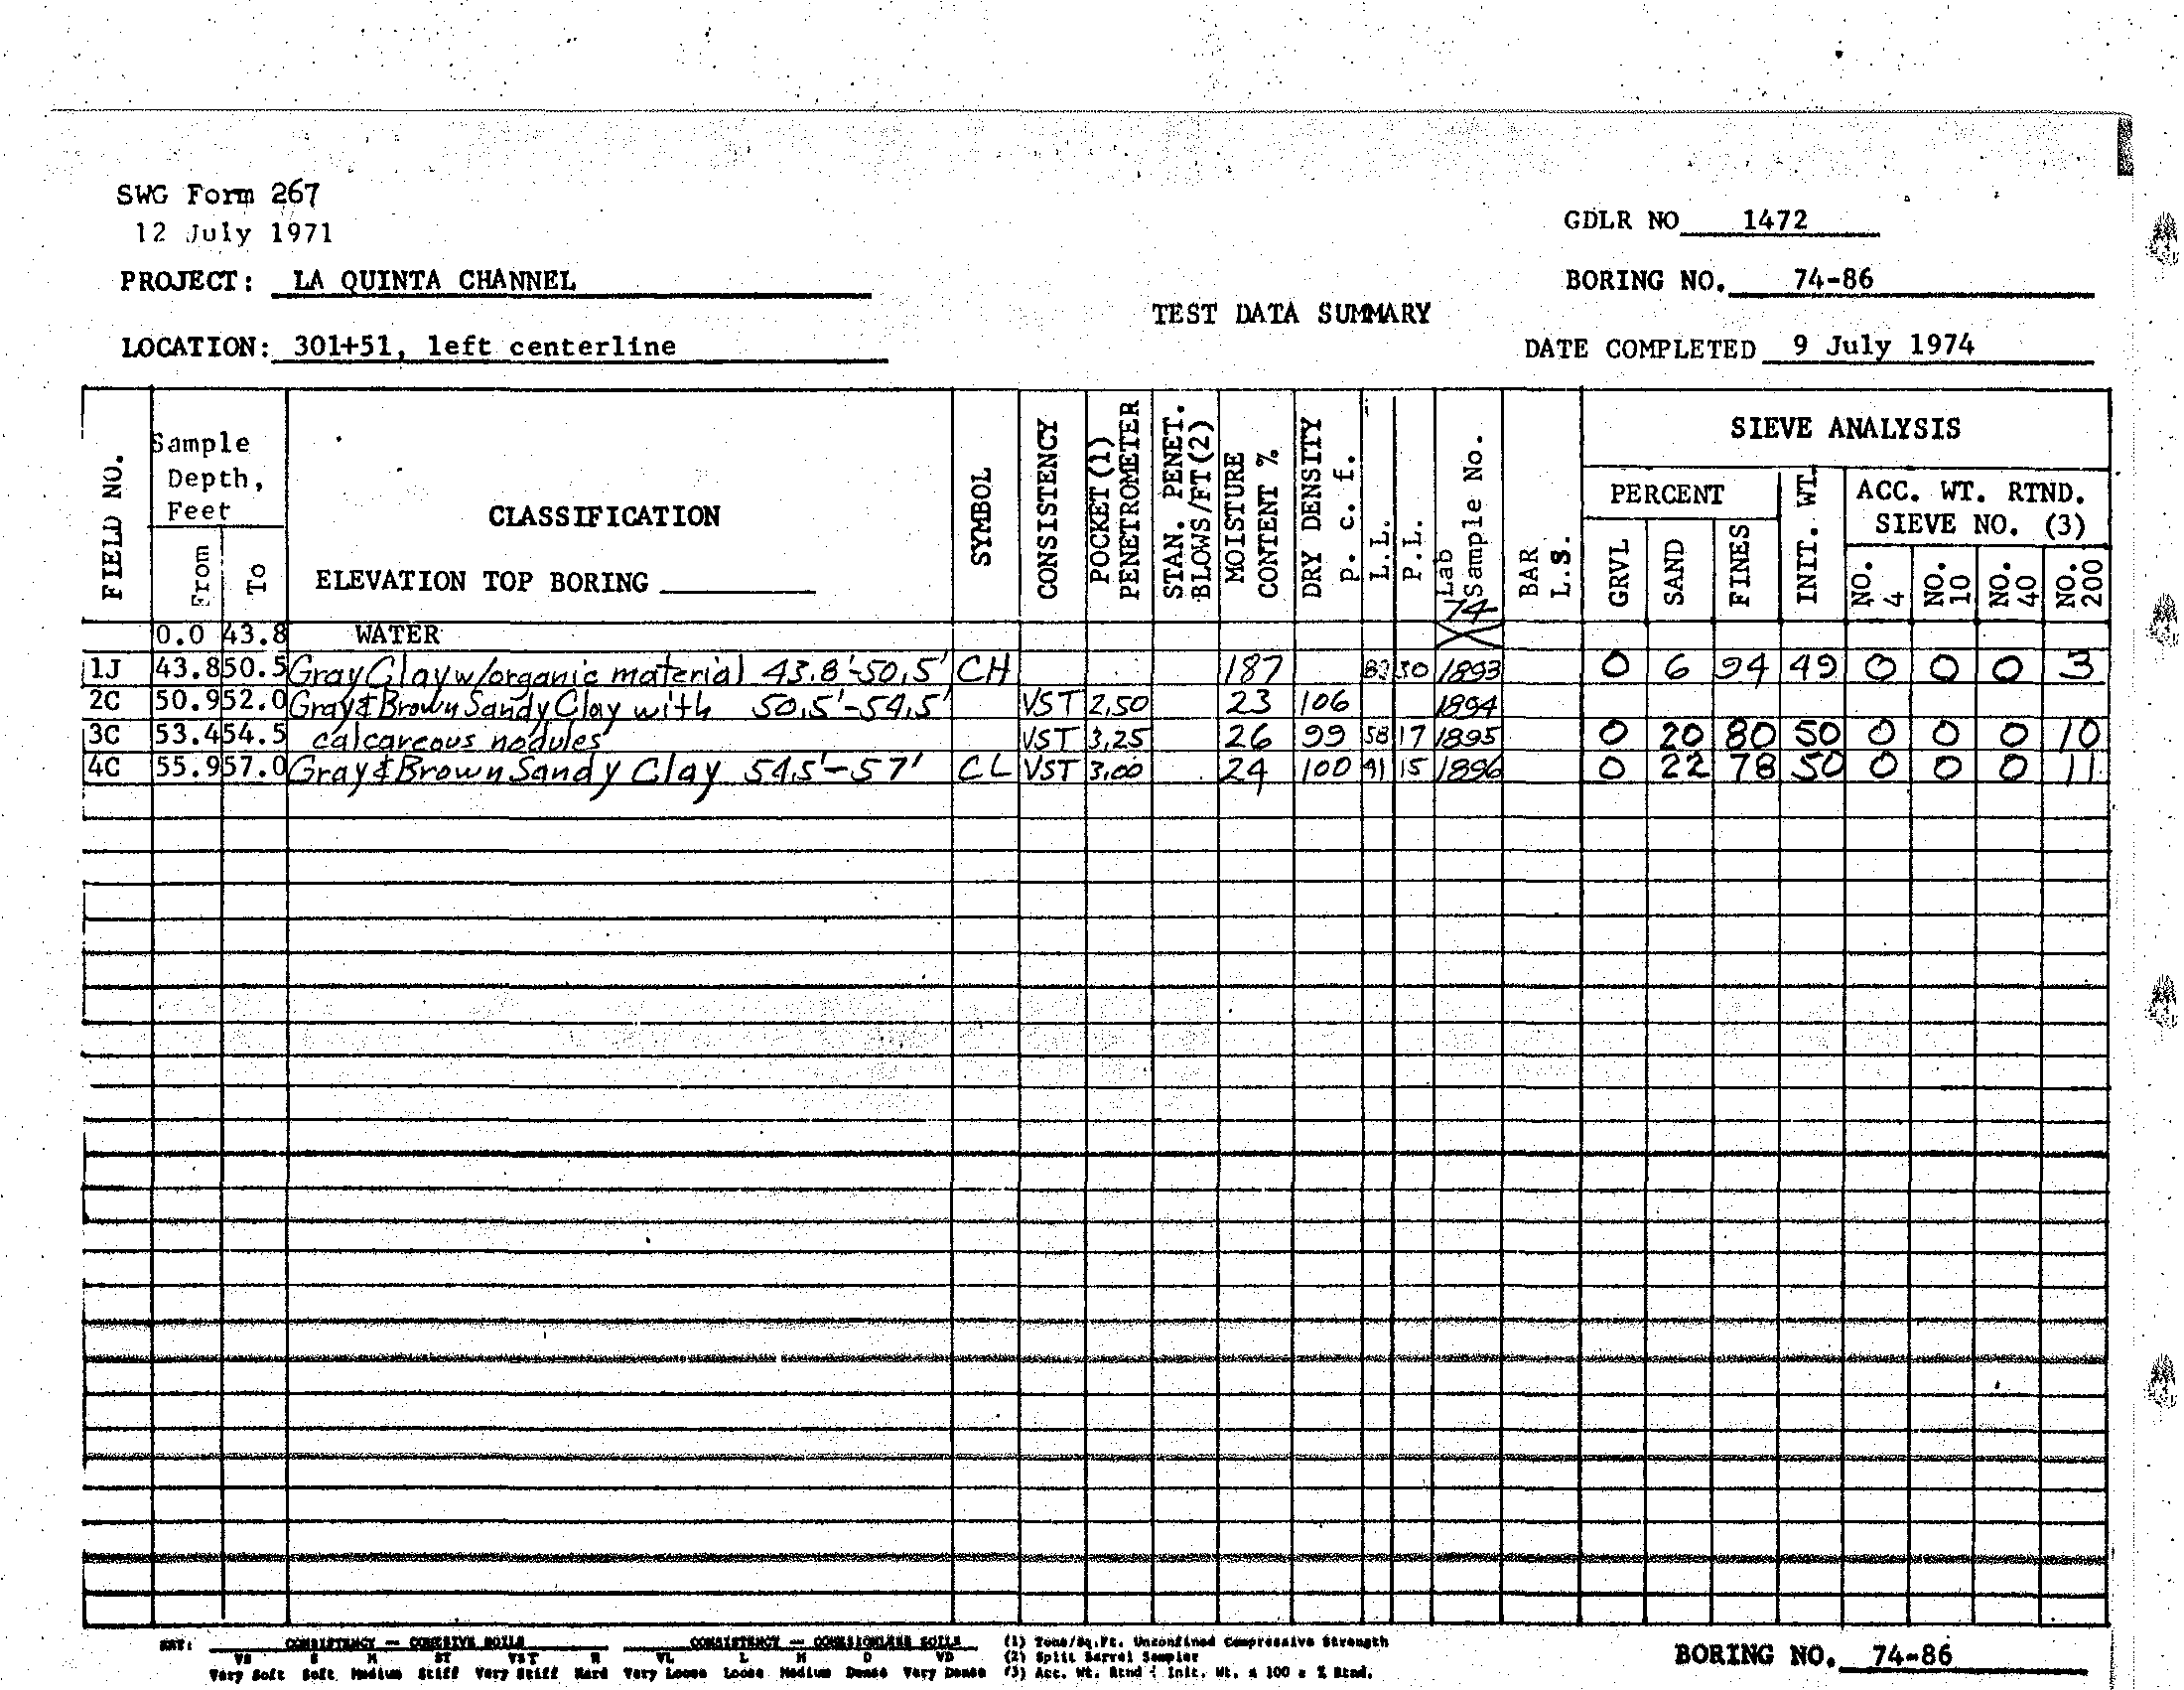 SWG Form 267
12 July 1971
GDLR NO 1472
PROJECT: LA QUINTA CHANNEL
BORING NO. 74-86
TEST DATA SUMMARY
LOCATION: 301+51, left centerline
DATE COMPLETED 9 July 1974
FIELD NO.
Sample Depth, Feet
From
To
CLASSIFICATION
ELEVATION TOP BORING
SYMBOL
CONSISTENCY
POCKET (1) PENETROMETER
STAN. PENET. BLOWS/FT(2)
MOISTURE CONTENT %
DRY DENSITY p. c. f.
L.L.
P.L.
Lab Sample No.
74-
BAR L.S.
SIEVE ANALYSIS
PERCENT
GRVL
SAND
FINES
INIT. WT.
ACC. WT. RTND. SIEVE NO. (3)
NO. 4
NO. 10
NO. 40
NO. 200
0.0 43.8 WATER
1J 43.8 50.5 Gray Clay w/organic material 43.8'-50.5' CH 187 30 1893 0 6 94 49 0 0 0 3
2C 50.9 52.0 Gray & Brown Sandy Clay with 50.5'-54.5' VST 2.50 23 106 1894
3C 53.4 54.5 calcareous nodules VST 3.25 26 99 58 17 1895 0 20 80 50 0 0 0 10
4C 55.9 57.0 Gray & Brown Sandy Clay 54.5'-57' CL VST 3.00 24 100 41 15 1896 0 22 78 50 0 0 0 11
CONSISTENCY -- COHESIVE SOILS
CONSISTENCY -- COHESIONLESS SOILS
VS S M ST VST H
VL L M D VD
Very Soft Soft Medium Stiff Very Stiff Hard
Very Loose Loose Medium Dense Very Dense
(1) Tons/Sq.Ft. Unconfined Compressive Strength
(2) Split Barrel Sampler
(3) Acc. Wt. Rtnd ÷ Init. Wt. x 100 = % Rtnd.
BORING NO. 74-86